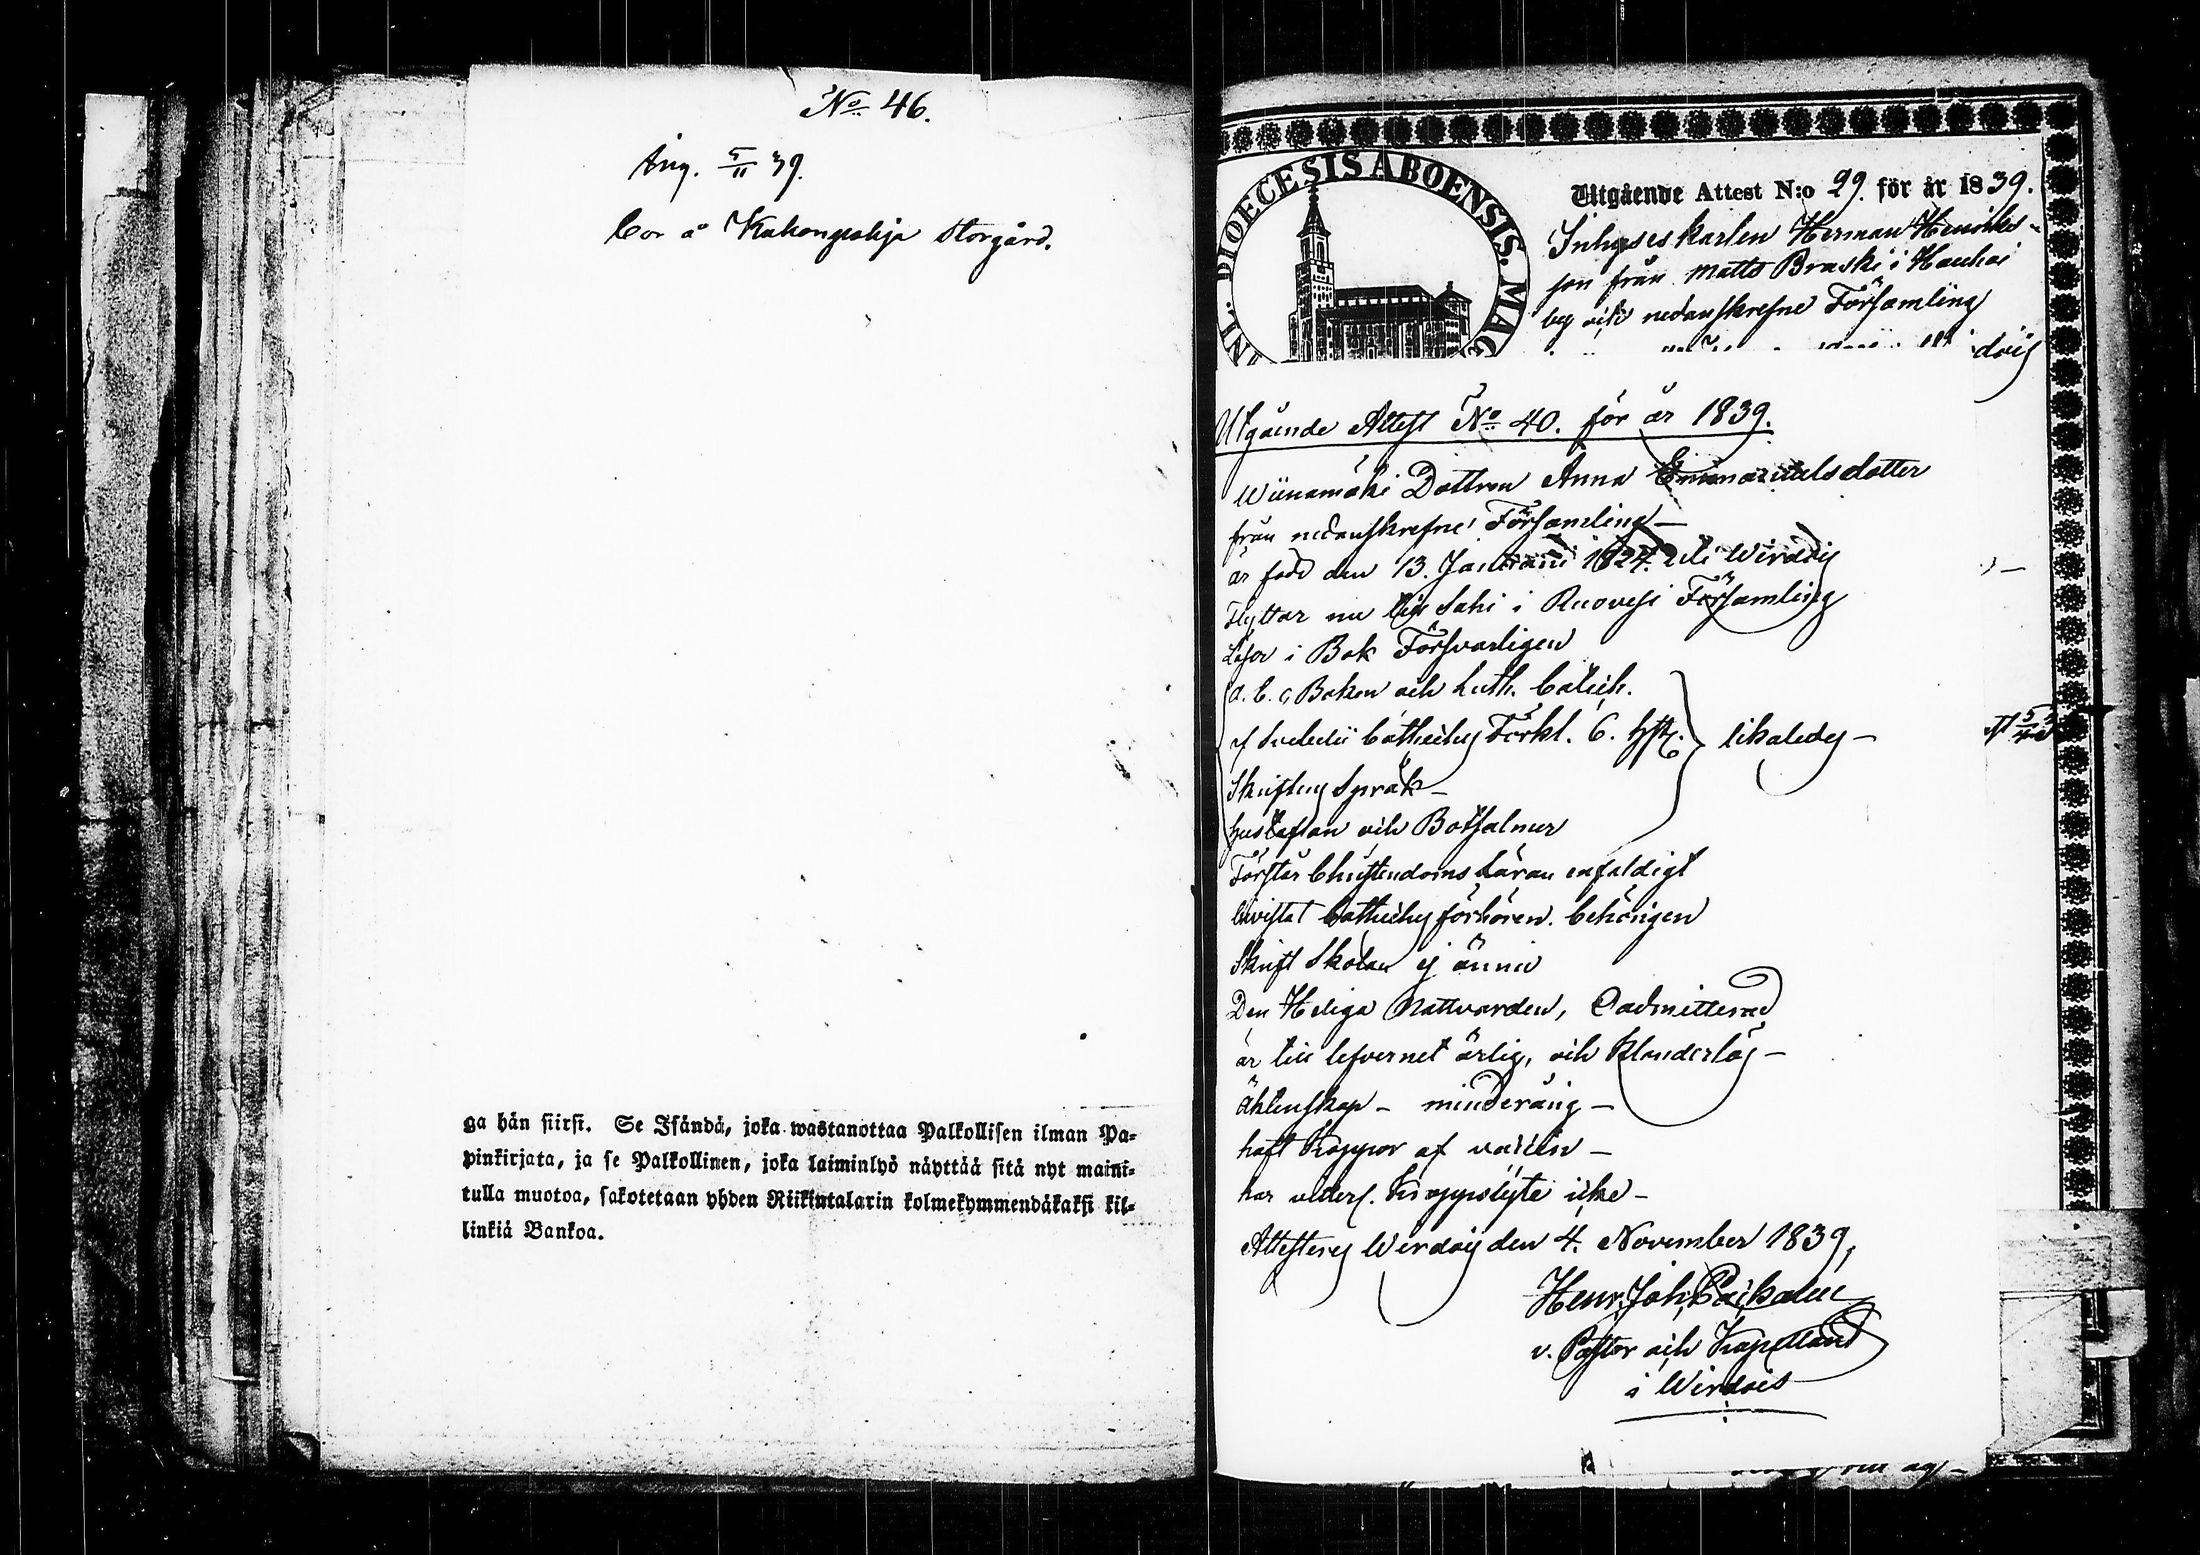 No 46.
Ang. 5/11 39.
bor å Storgård.
ga hän siirsi. Se Isändä, joka wastanottaa Palkollisen ilman Pa-
pinkirjata, ja se Palkollinen, joka laiminlyö näyttää sitä nyt maini-
tulla muotoa, sakotetaan yhden Riikintalarin kolmekymmendäkaksi kil-
linkiä Bankoa.
DIOECESIS ABOENSIS. MAG
Utgående Attest N:o 29. för år 1839.
Inhyseskarlen Herman Henriks-
son från Matts Braski i Hauhoi
och nedanskrefne Församling
Utgående Attest No 40. för år 1839.
Wiinamäki Dottren Anna Emanuelsdotter
från nedanskrefne Församling —
är född den 13. Januarii 1824. i Wirdois
Flyttar nu till Sahi i Ruovesi Församling
Läser i Bok Försvarligen
a. b. c Boken och Luth. Catech.
Svebelii Catheches Förkl. 6. hst. likaledes —
Skriftens Språk —
hustaflan och Botsalmer
Förstår Christendoms Läran enfaldigt
bevistat Catheches förhören. behörigen
Skrift Skolan ej ännu
Den Heliga Nattvarden, Oadmitterad
är till lefvernet ärlig, och klanderlös —
Äktenskap — minderårig —
haft Koppor af naturen —
har veterl. Kroppslyte icke —
Attesteras Wirdois den 4. November 1839,
Henr. Joh.
v. Pastor och Kapellan
i Wirdois